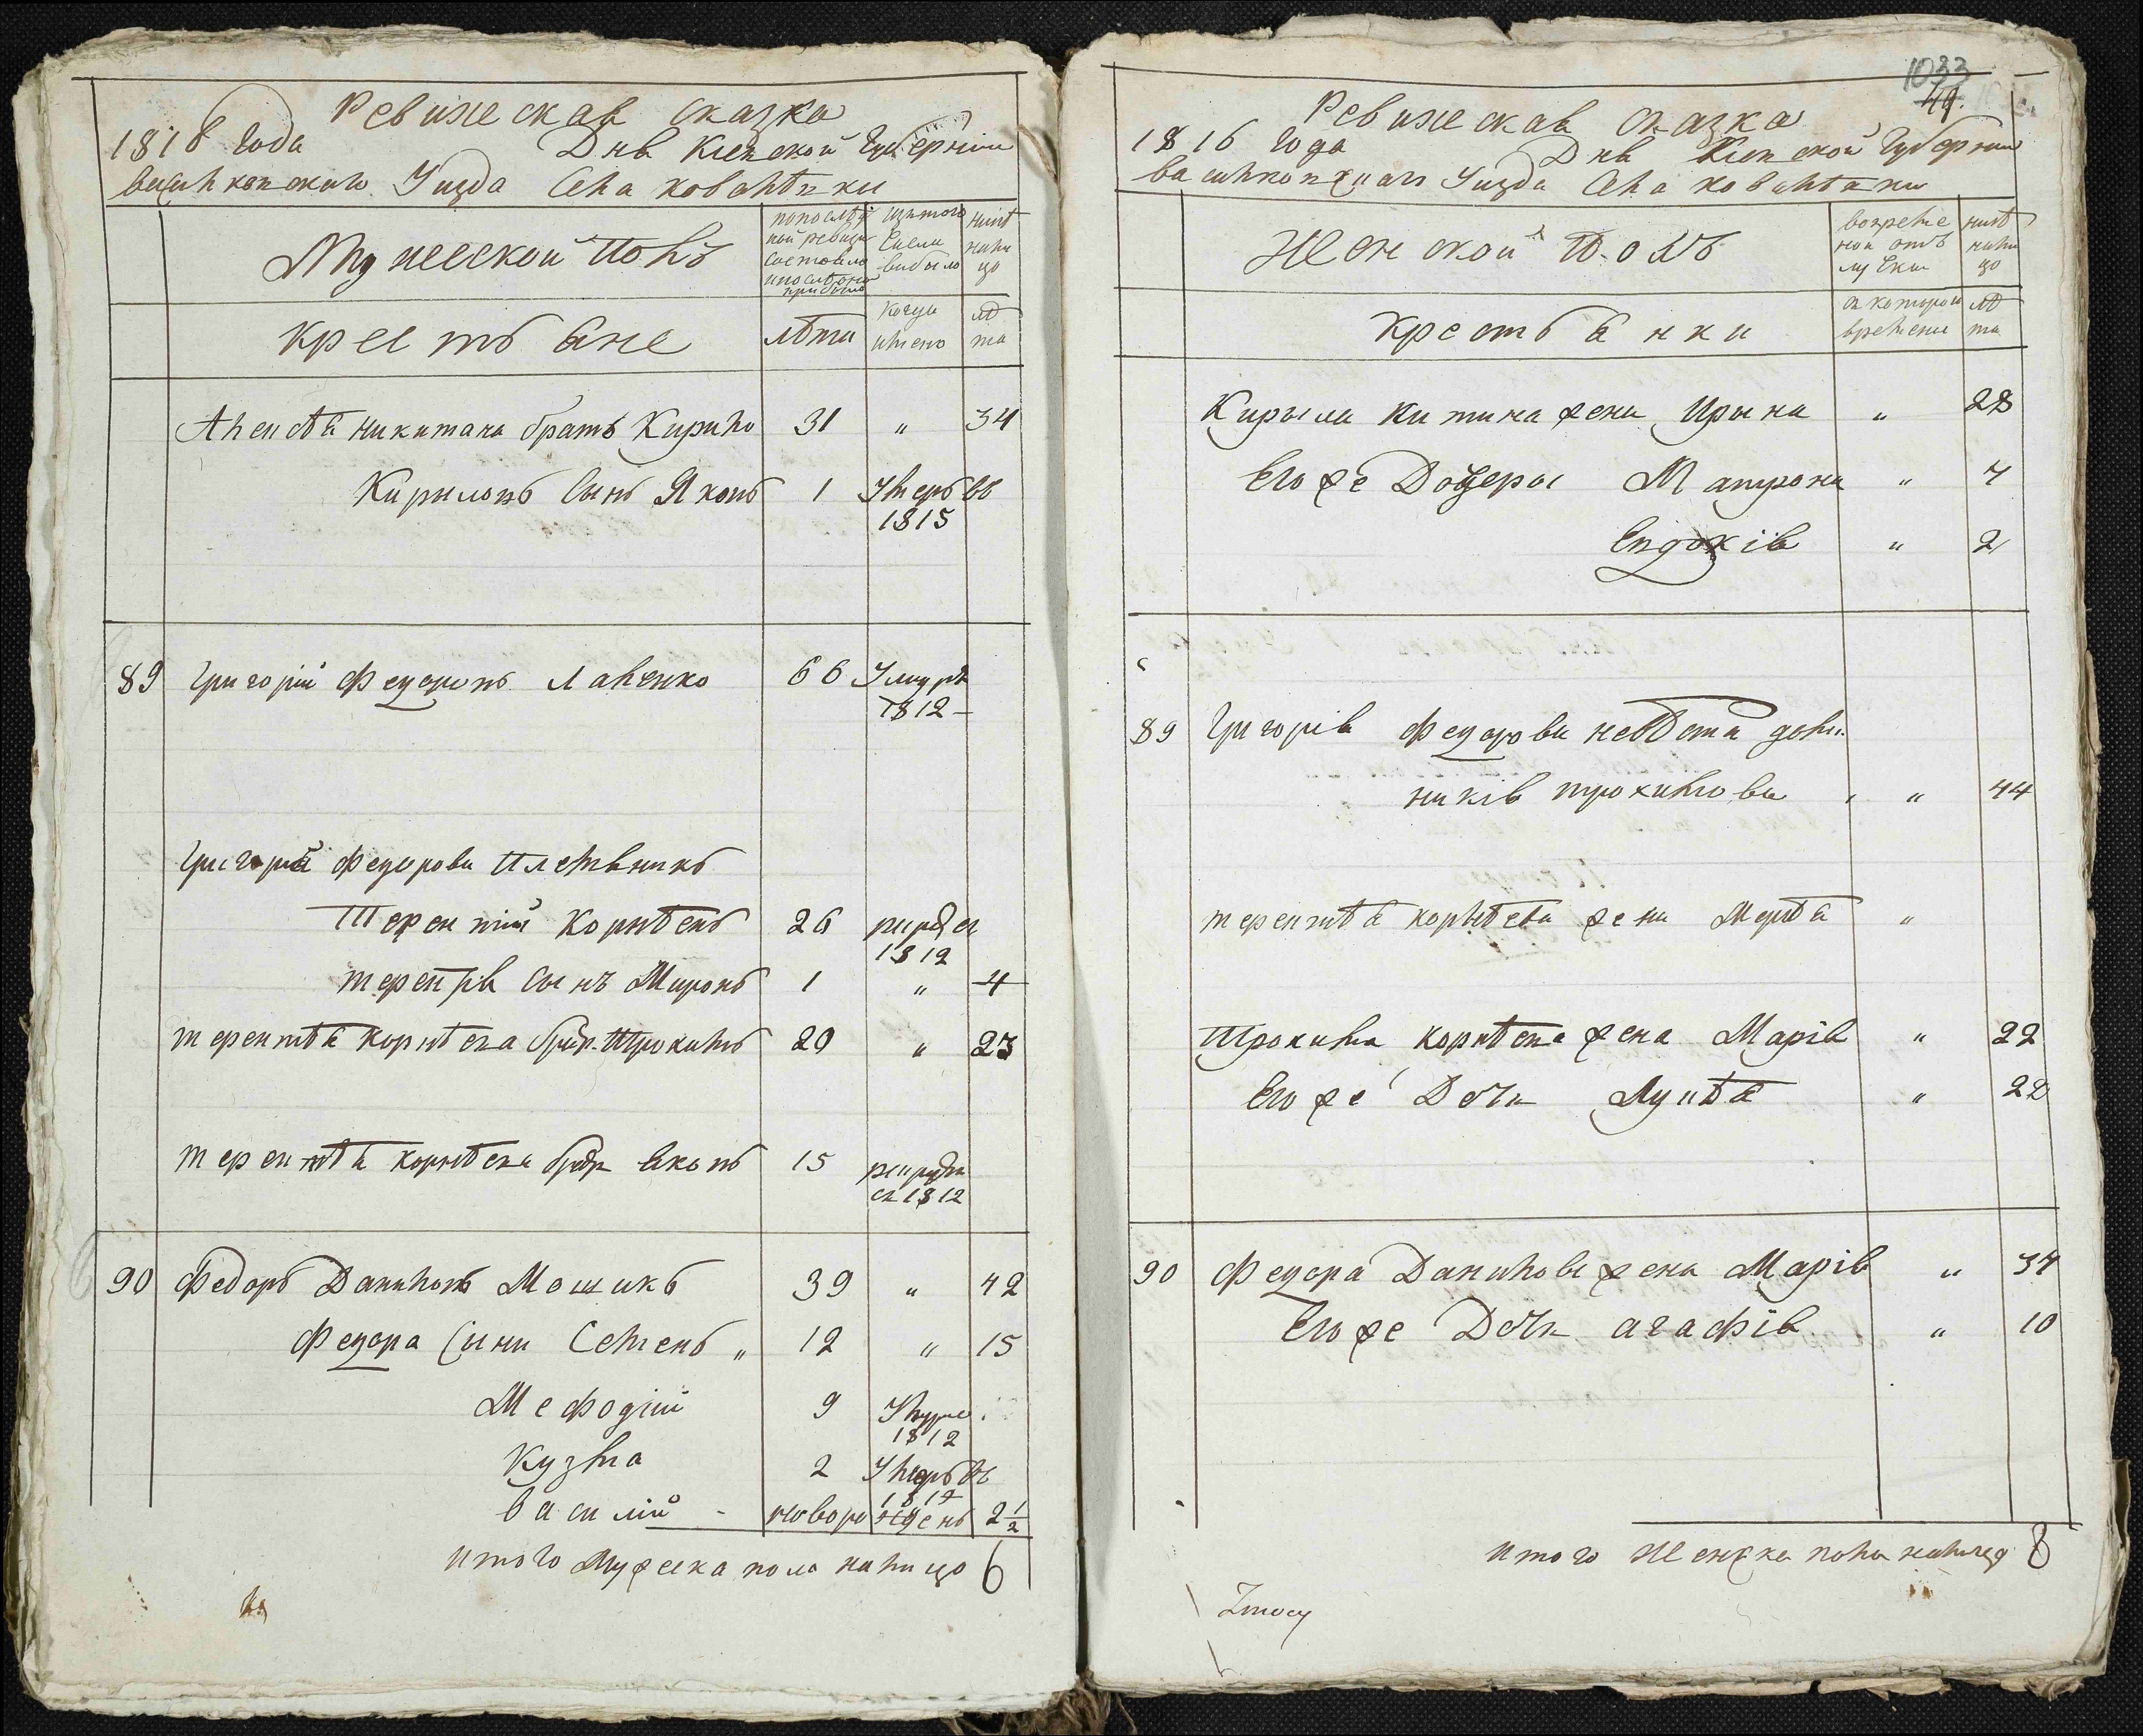 Ревижская сказка
1816 года Дня Киевской Губернии
василковского Уизда Села ковалѣвки
Мужеской Полъ
попослѣд
ной ревизи
состояло
ипослѣоно
прибыло
изтого
числа
выбыло
нинѣ
нали
цо
крестьяне
лѣта
когда
имено
лѣ
та
Алексѣя никитана братъ Кирило 31 " 34
Кириловъ Сынъ Яковъ 1 Умеръ въ
1815
89 Григорій Федоровъ Лапенко 66 Умеръ
1812
Григорія Федорова Племяникъ
Терентий Корнѣевъ 26
1812
терентія сынъ Миронъ 1 " 4
терентѣя корнѣева брат Трохимъ 20 " 23
терентѣя корнѣева брат яковъ 15
1812
90 Федоръ Даниловъ Мошикъ 39 " 42
Федора Сыни Семенъ " 12 " 15
Мефодій 9 Умре
1812
Кузма 2 Умеръ въ
1812
василій - новорожденъ 2 1/2
итого мужеска пола налицо 6
1033
Ревижская сказка
1816 года Дня Киевской Губернии
василковскаго Уизда Села ковалѣвки
Женской Полъ
вовреме
ной отъ
лучки
нинѣ
нали
цо
крестьянки
скоторого
времени
лѣ
та
Кирыла Никитина жена Ирына " 28
Его же Дочеры Матрона " 7
Евдокія " 2
89 Григорія Федорова невѣста дом
никія трохимова " 44
терентѣя корнѣева жена Мария "
Трохима корнѣева жена Марія " 22
Его же Дочь Лукѣя " 2
90 Федора Данилова жена Марія " 37
Его же Дочь агафія " 10
итого женска пола налицо 8